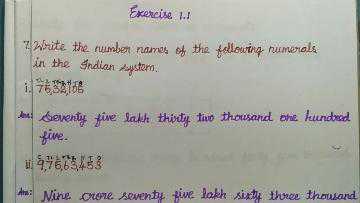 Exercise 1.1
7. Write the number names of the following numerals
in the Indian system.
i. 75,32,105
Ans: Seventy five lakh thirty two thousand one hundred
five.
ii. 9,75,63,453
Ans: Nine crore seventy five lakh sixty three thousand